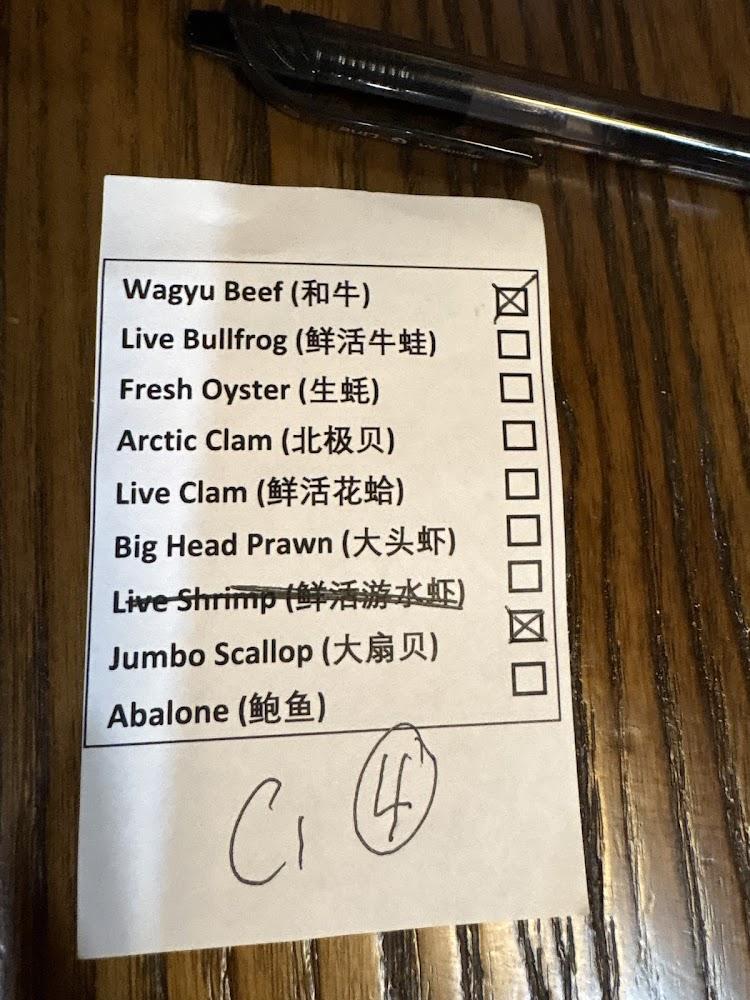 Wagyu Beef (和牛)
Live Bullfrog (鲜活牛蛙)
Fresh Oyster (生蚝)
Arctic Clam (北极贝)
Live Clam (鲜活花蛤)
Big Head Prawn (大头虾)
Live Shrimp (鲜活游水虾)
Jumbo Scallop (大扇贝)
Abalone (鲍鱼)
C1 4